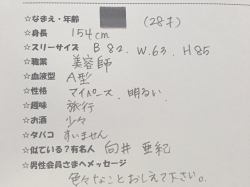 ☆なまえ・年齢 (28才)
☆身長 154cm
☆スリーサイズ B 82. W.63. H.85
☆職業 美容師
☆血液型 A型
☆性格 マイペース、明るい
☆趣味 旅行
☆お酒 少々
☆タバコ すいません
☆似ている?有名人 向井 亜紀
☆男性会員さまへメッセージ
色々なことおしえて下さい。